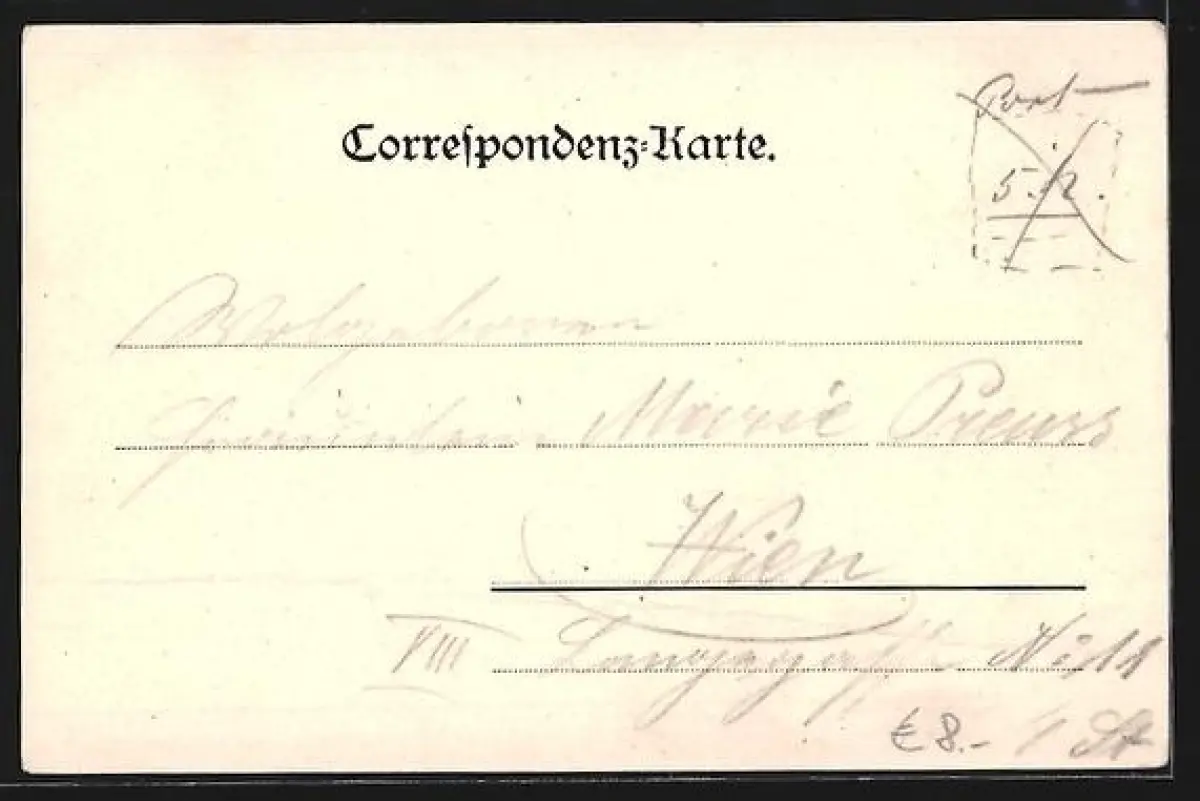 Correspondenz-Karte.
Port
5
Wohlgeboren
Fräulein Marie Preuss
Wien
VIII Langegasse N: 11
€ 8.- 1 St